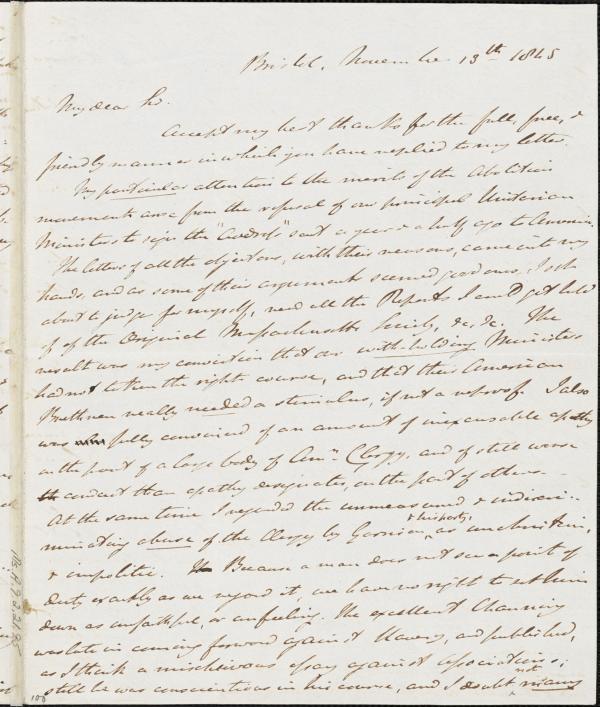 Bristol, November 13th 1845
My dear Sir.
Accept my best thanks for the full, free, &
friendly manner in which you have replied to my letter.
My particular attention to the merits of the Abolition
movements arose from the refusal of our principal Unitarian
Ministers to sign the "Address" sent a year & a half ago to America.
The letters of all the objectors, with their reasons, came into my
hands, and as some of their arguments seemed good ones, I set
about to judge for myself, read all the Reports I could get hold
of of the Original Massachusetts Society, &c. &c. The
result was my conviction that our withholding Ministers
had not taken the right course, and that their American
Brethren really needed a stimulus, if not a reproof. I also
was fully convinced of an amount of inexcusable apathy
on the part of a large body of Amn Clergy, and of still worse
conduct than apathy designates, on the part of others.
At the same time I regarded the unmeasured & indiscri-
minating abuse of the Clergy by Garrison, & his party, as unchristian,
& impolitic. Because a man does not see a point of
duty exactly as we regard it, we have no right to set him
down as unfaithful, or unfeeling. The excellent Channing
was late in coming forward against Slavery, and published,
as I think a mischievous essay against Associations;
still he was conscientious in his course, and I doubt not many
100
Ms.A.9.2.21.95